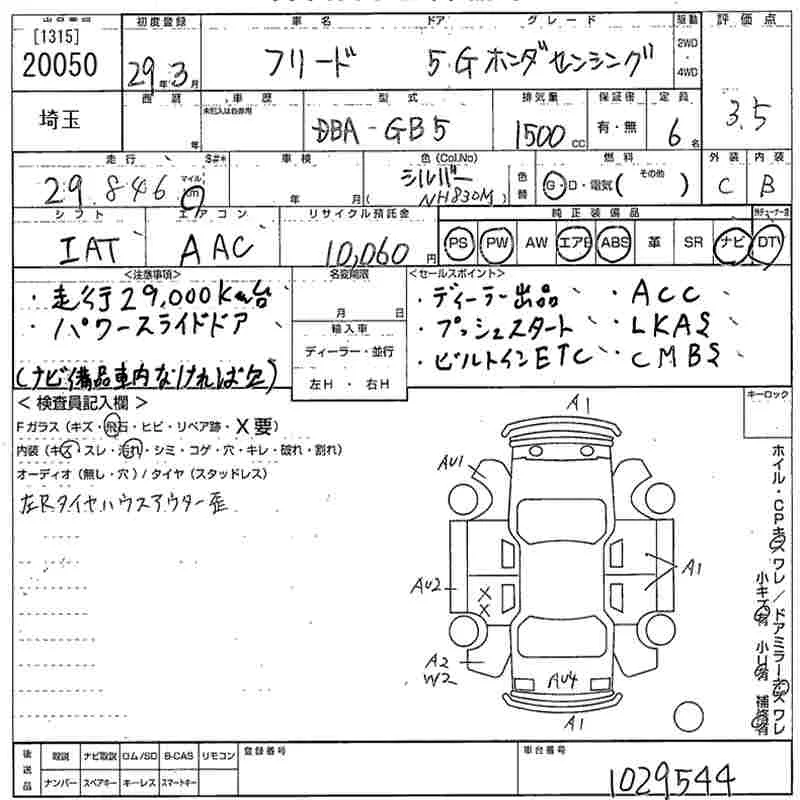 [1315]
20050
初度登録
29年3月
車名 ドア グレード
フリード 5.Gホンダセンシング
駆動
2WD
・
4WD
評価点
3.5
埼玉
西暦
年
車歴
未記入は自家用
型式
DBA-GB5
排気量
1500cc
保証書
有・無
定員
6名
走行 S#*
29.846 マイル km
車検
年 月
色(Col.No)
シルバー
(NH830M)
色替
燃料
G・D・電気( その他 )
外装
C
内装
B
シフト
IAT
エアコン
AAC
リサイクル預託金
10,060円
純正装備品
PS PW AW エアB ABS 革 SR ナビ DTV
<注意事項>
・走行29,000Km台
・パワースライドドア
(ナビ備品車内なければ欠)
名変期限
月 日
輸入車
ディーラー・並行
左H・右H
<セールスポイント>
・ディーラー出品 ・ACC
・プッシュスタート ・LKAS
・ビルトインETC ・CMBS
<検査員記入欄>
Fガラス(キズ・飛石・ヒビ・リペア跡・X要)
内装(キズ・スレ・汚れ・シミ・コゲ・穴・キレ・破れ・割れ)
オーディオ(無し・穴)/タイヤ(スタッドレス)
左Rタイヤハウスアウター歪
キーロック
A1
AU1
A1
AU2
X
X
A2
W2
AU4
A1
ホイル・CPキズワレ/ドアミラーキズワレ
小キズ有 小U有 補修有
後送品
取説 ナビ取説 ロム/SD B-CAS リモコン
ナンバー スペアキー キーレス スマートキー
登録番号
車台番号
1029544